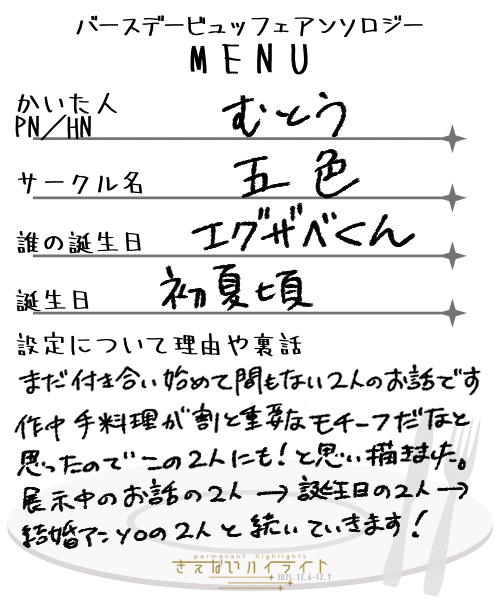 バースデービュッフェアンソロジー
MENU
かいた人
PN／HN
むとう
サークル名
五色
誰の誕生日
エグザべくん
誕生日
初夏頃
設定について理由や裏話
まだ付き合い始めて間もない2人のお話です
作中手料理が割と重要なモチーフだなと
思ったのでこの2人にも！と思い描きました。
展示中のお話の2人→誕生日の2人→
結婚アンソロの2人と続いていきます！
permanent highlights
さえないハイライト
2025.12.6-12.7